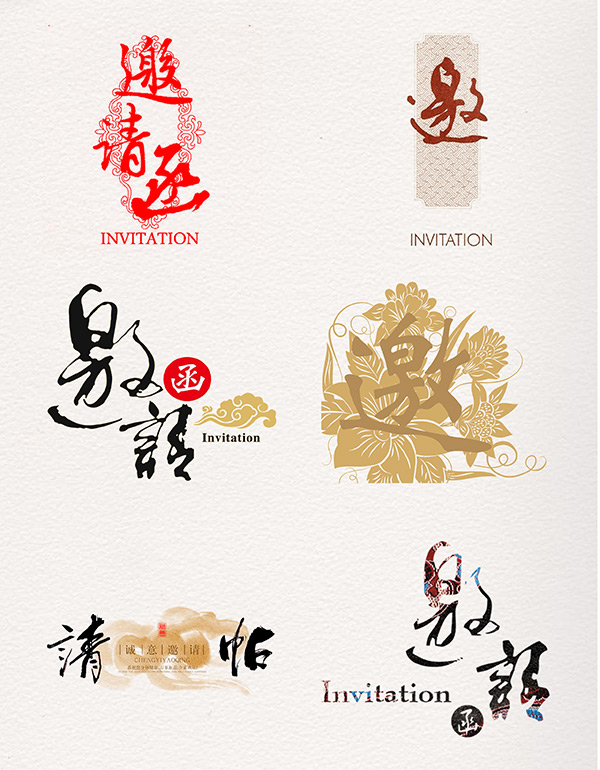 邀
请
函
INVITATION
邀
INVITATION
邀
函
請
Invitation
邀
請
帖
诚意邀请
CHENGYIYAOQING
邀
請
Invitation
函